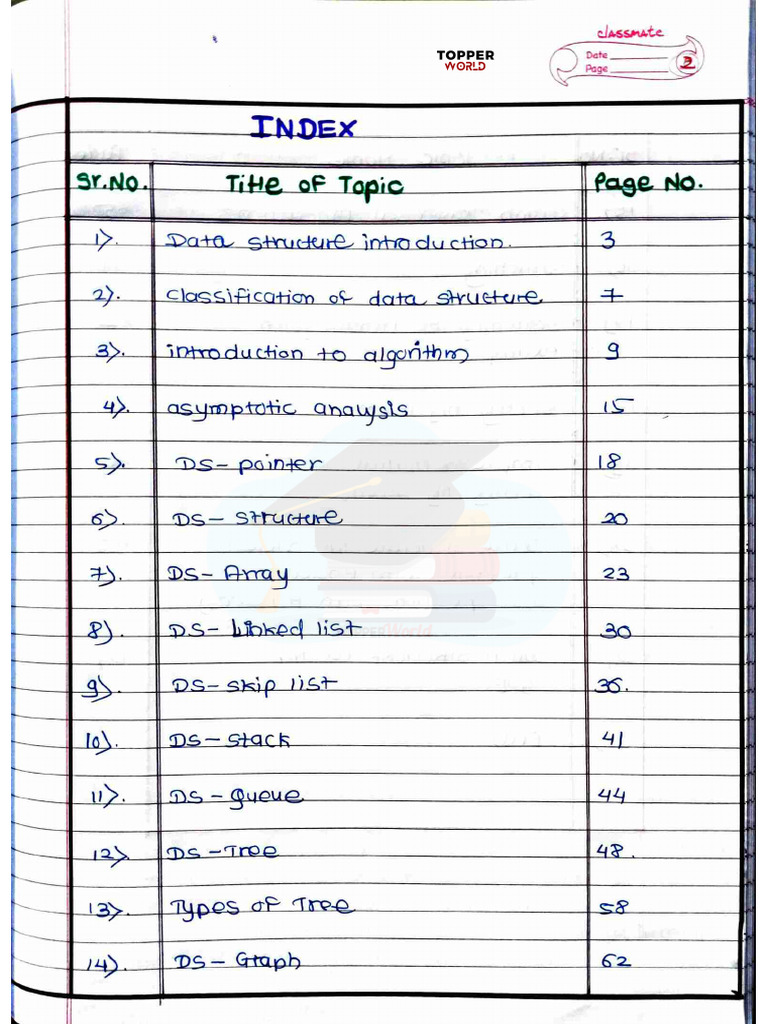 classmate
TOPPER
WORLD
Date
Page 2
INDEX
Sr.No. Title of Topic Page No.
1). Data structure introduction. 3
2). classification of data structure 7
3). introduction to algorithm 9
4). asymptotic analysis 15
5). DS- pointer 18
6). DS- structure 20
7). DS- Array 23
8). DS- Linked list 30
9). DS- skip list 36.
10). DS- stack 41
11). DS- queue 44
12). DS- Tree 48.
13). Types of Tree 58
14). DS- Graph 62